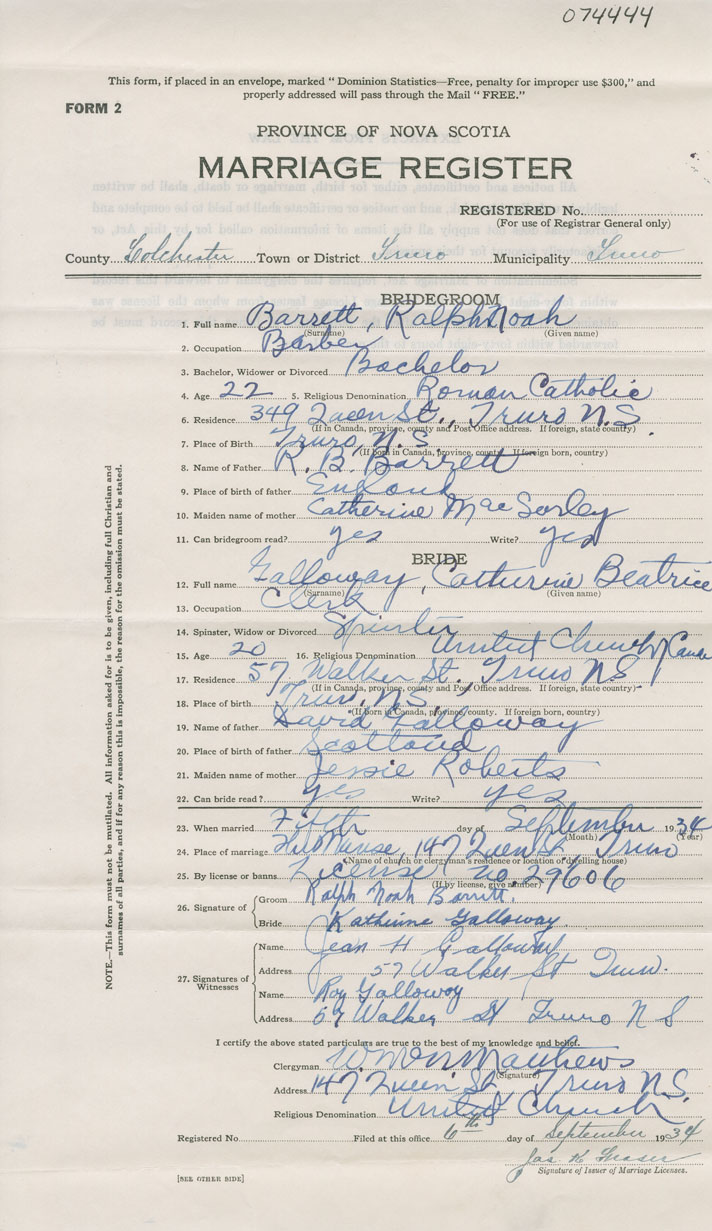 074444
This form, if placed in an envelope, marked "Dominion Statistics—Free, penalty for improper use $300," and
properly addressed will pass through the Mail "FREE."
FORM 2
PROVINCE OF NOVA SCOTIA
MARRIAGE REGISTER
REGISTERED No.
(For use of Registrar General only)
County Colchester Town or District Truro Municipality Truro
BRIDEGROOM
1. Full name Barrett, Ralph Noah
(Surname) (Given name)
2. Occupation Barber
3. Bachelor, Widower or Divorced Bachelor
4. Age 22 5. Religious Denomination Roman Catholic
6. Residence 349 Queen St., Truro N.S.
(If in Canada, province, county and Post Office address. If foreign, state country)
7. Place of Birth Truro, N.S
(If born in Canada, province, county. If foreign born, country)
8. Name of Father R. B. Barrett
9. Place of birth of father England
10. Maiden name of mother Catherine MacSorley
11. Can bridegroom read? yes Write? yes
BRIDE
12. Full name Galloway, Catherine Beatrice
(Surname) (Given name)
13. Occupation Clerk
14. Spinster, Widow or Divorced Spinster
15. Age 20 16. Religious Denomination United Church of Canada
17. Residence 57 Walker St. Truro NS
(If in Canada, province, county and Post Office address. If foreign, state country)
18. Place of birth Truro, N.S.
(If born in Canada, province/county. If foreign born, country)
19. Name of father David Galloway
20. Place of birth of father Scotland
21. Maiden name of mother Jessie Roberts
22. Can bride read? yes Write? yes
23. When married Fifth day of September 1934
(Month) (Year)
24. Place of marriage The Manse, 147 Queen St Truro
(Name of church or clergyman's residence or location of dwelling house)
25. By license or banns License no. 29606
(If by license, give number)
26. Signature of Groom Ralph Noah Barrett.
Bride Katherine Galloway
27. Signatures of Witnesses
Name Jean H Galloway
Address 57 Walker St Truro.
Name Roy Galloway
Address 57 Walker St Truro N S
I certify the above stated particulars are true to the best of my knowledge and belief.
Clergyman Matthews
(Signature)
Address 147 Queen St. Truro N.S.
Religious Denomination United Church
Registered No. Filed at this office 6th day of September 1934
Jas K Fraser
Signature of Issuer of Marriage Licenses.
[SEE OTHER SIDE]
NOTE.—This form must not be mutilated. All information asked for is to be given, including full Christian and
surnames of all parties, and if for any reason this is impossible, the reason for the omission must be stated.